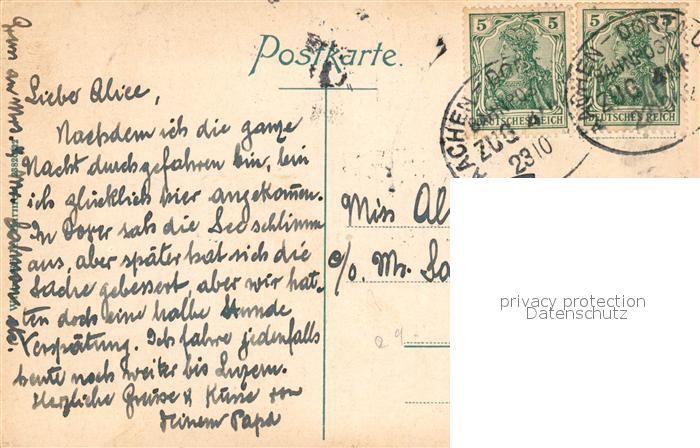 Postkarte.
5 5
DEUTSCHES REICH
5
DEUTSCHES REICH
AACHEN
ZUG
2310
AACHEN
ZUG
Liebe Alice,
Nachdem ich die ganze
Nacht durchgefahren bin, bin
ich glücklich hier angekommen.
In Dover sah die See schlimm
aus, aber später hat sich die
Sache gebessert, aber wir hat-
ten doch eine halbe Stunde
Verspätung. Ich fahre jedenfalls
heute noch weiter bis Luzern.
Herzliche Grüsse & Küsse von
Deinem Papa
Miss Al
c/o. Mr. Sa
privacy protection
Datenschutz